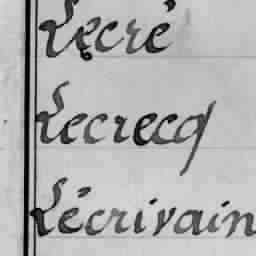 Lecré
Lecrecq
Lécrivain